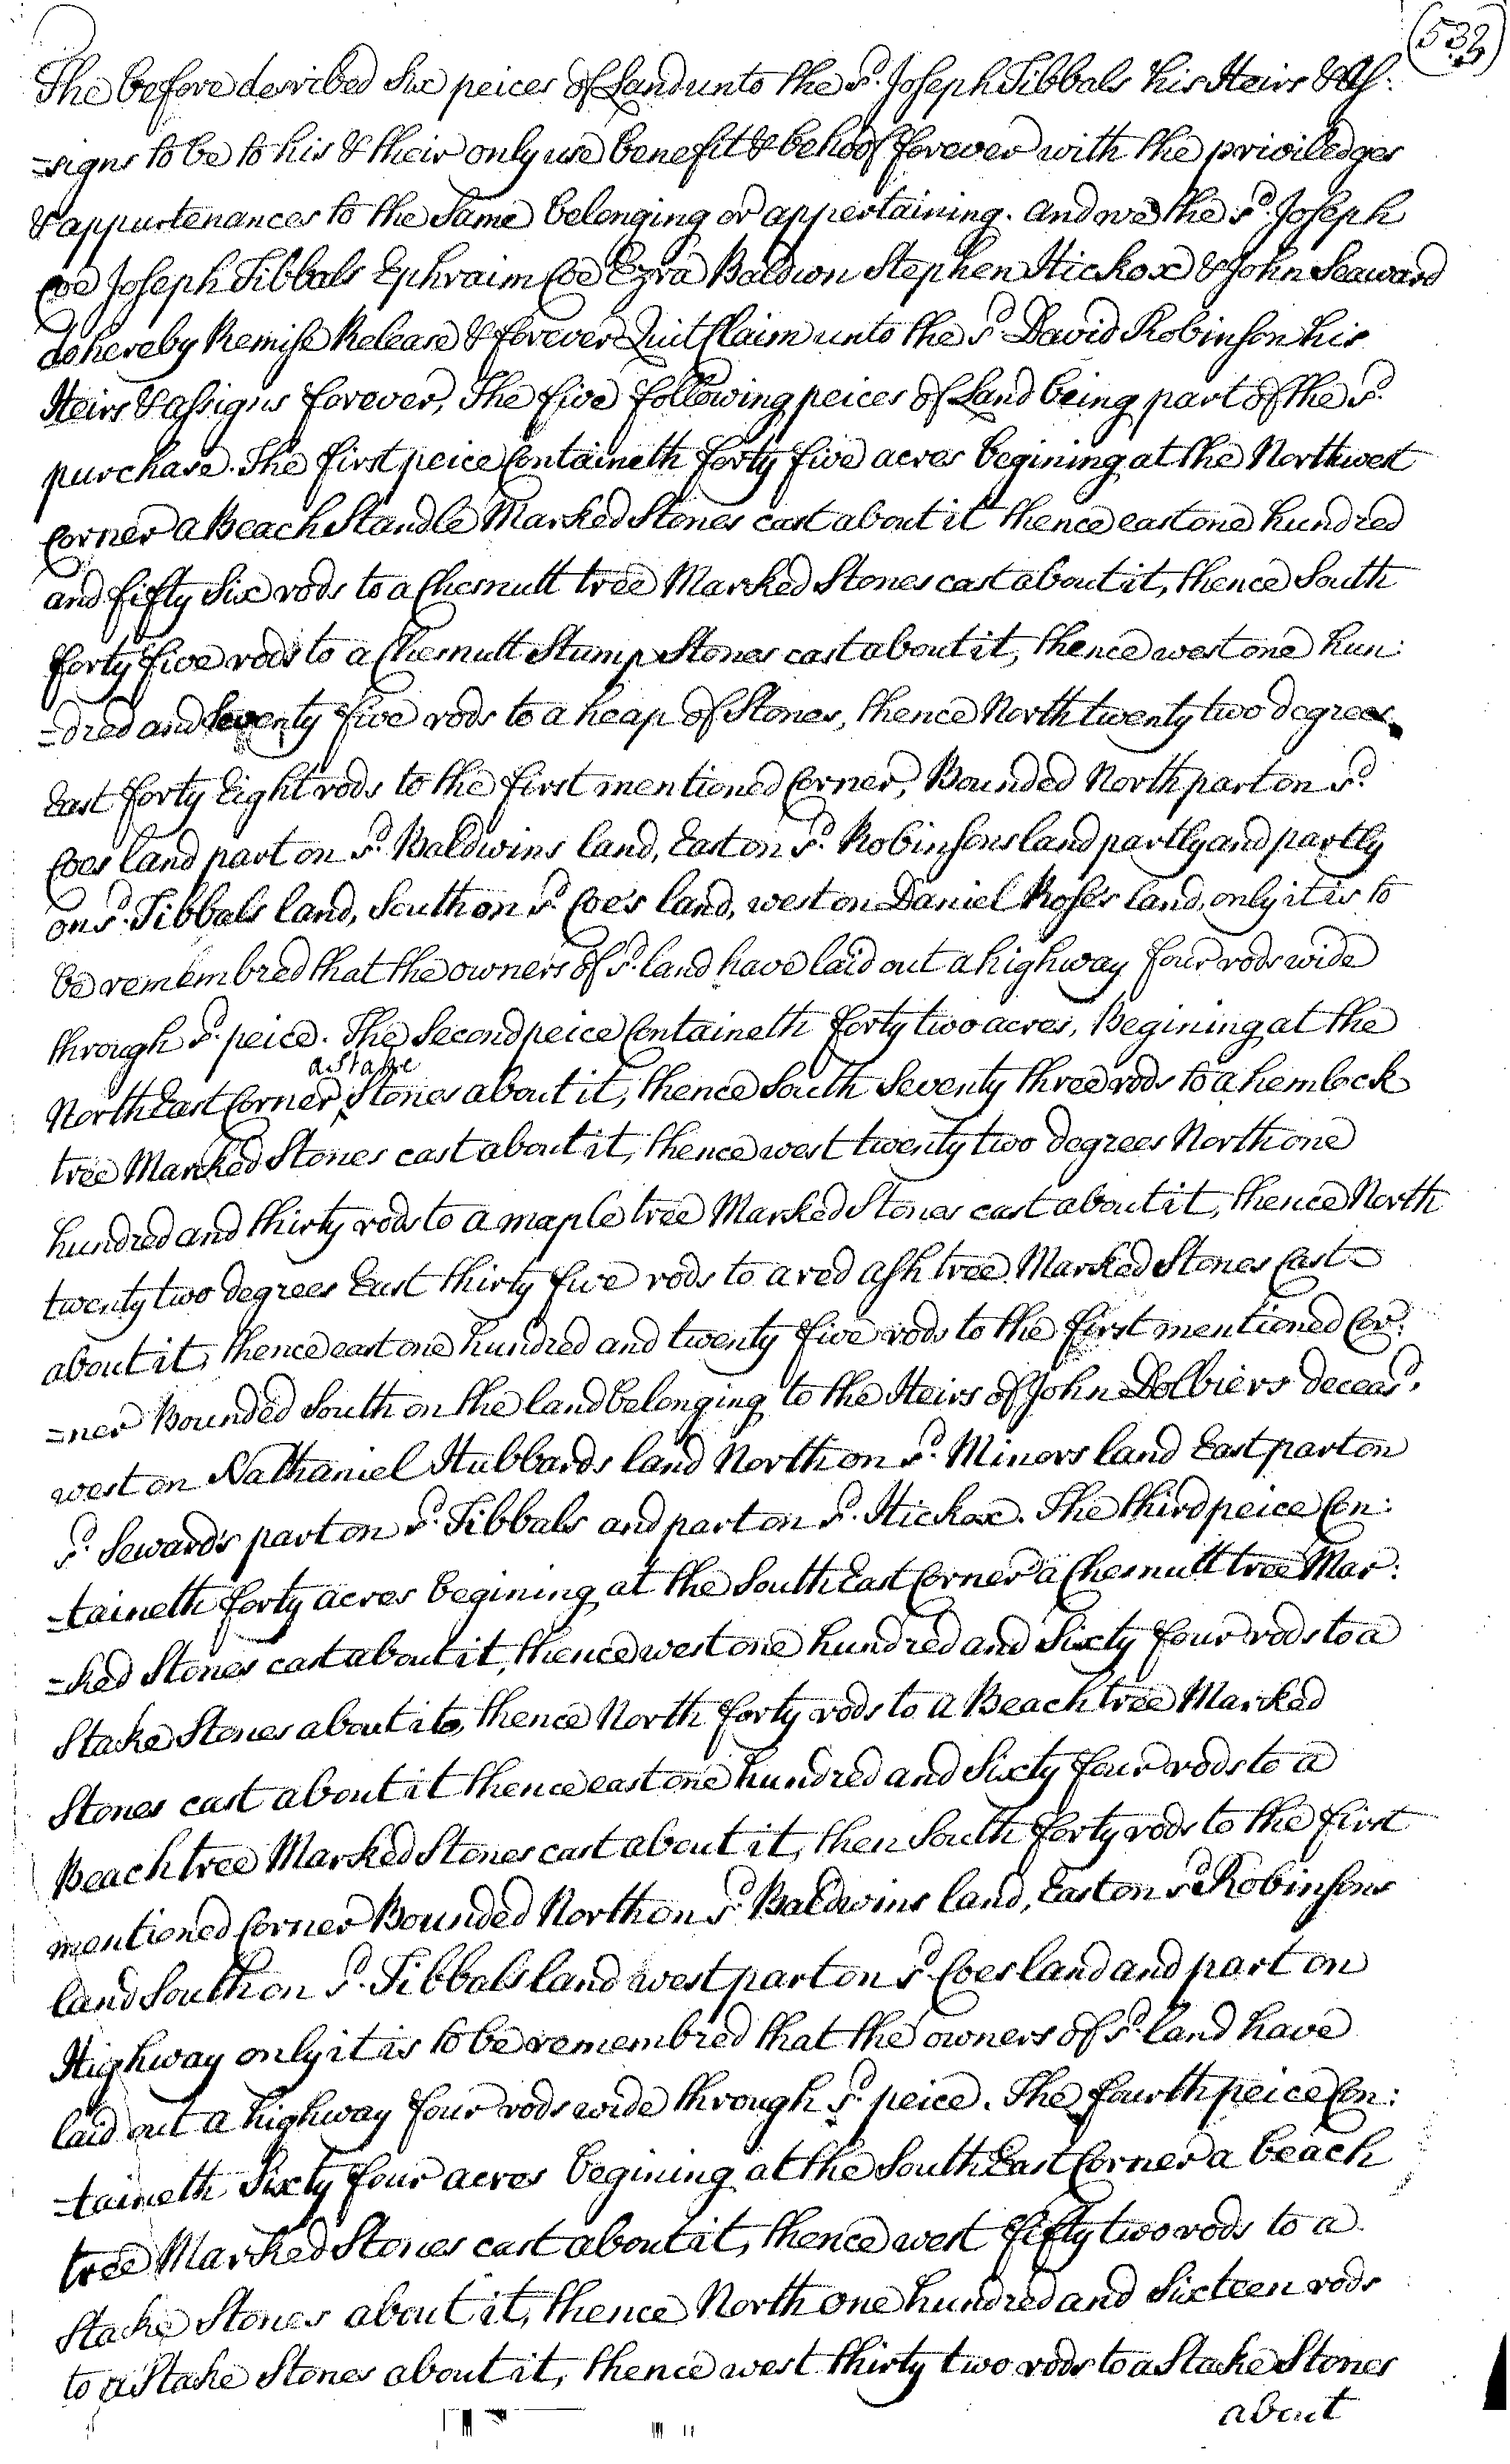 (532)
The before described Six peices of Land unto the sd. Joseph Tibbals his Heirs & As:
=signs to be to his & their only use benefit & behoof forever with the priviledges
& appurtenances to the Same belonging or appertaining. and we the sd. Joseph
Coe Joseph Tibbals Ephraim Coe Ezra Baldwin Stephen Hickox & John Seaward
do hereby Remise Release & forever Quit Claim unto the sd David Robinson his
Heirs & assigns forever, The five following peices of Land being part of the sd.
purchase. The first peice Containeth forty five acres begining at the Northwest
Corner a Beach Standle Marked Stones cast about it thence east one hundred
and fifty Six rods to a Chesnutt tree Marked Stones cast about it, thence South
forty five rods to a Chesnutt Stump Stones cast about it, thence west one hun:
=dred and Seventy five rods to a heap of Stones, thence North twenty two degrees
East forty Eight rods to the first mentioned Corner, Bounded North part on sd.
Coes land part on sd. Baldwins land, East on sd. Robinsons land partly and partly
on sd. Tibbals land, South on sd. Coe's land, west on Daniel Rose's land, only it is to
be remembred that the owners of sd. land have laid out a highway four rods wide
through sd. peice. The Second peice Containeth forty two acres, Begining at the
North East Corner a Stake Stones about it, thence South Seventy three rods to a hemlock
tree Marked Stones cast about it, thence west twenty two degrees North one
hundred and thirty rods to a maple tree Marked Stones cast about it, thence North
twenty two degrees East thirty five rods to a red ash tree Marked Stones Cast
about it, thence east one hundred and twenty five rods to the first mentioned Cor:
=ner Bounded South on the land belonging to the Heirs of John Dolbiers deceasd.
west on Nathaniel Hubbards land North on sd. Minors land East part on
sd. Seward's part on sd. Tibbals and part on sd. Hickox. The third peice Con:
=taineth forty acres begining at the South East Corner a Chesnutt tree Mar:
=ked Stones cast about it, thence west one hundred and Sixty four rods to a
Stake Stones about it, thence North forty rods to a Beach tree Marked
Stones cast about it thence east one hundred and Sixty four rods to a
Beach tree Marked Stones cast about it, then South forty rods to the first
mentioned Corner Bounded North on sd. Baldwins land, East on sd Robinsons
land South on sd. Tibbals land west part on sd Coes land and part on
Highway only it is to be remembred that the owners of sd. land have
laid out a highway four rods wide through sd. peice. The fourth peice Con:
=taineth Sixty four acres begining at the South East Corner a beach
tree Marked Stones cast about it, thence west fifty two rods to a
Stake Stones about it, thence North one hundred and Sixteen rods
to a Stake Stones about it, thence west thirty two rods to a Stake Stones
about